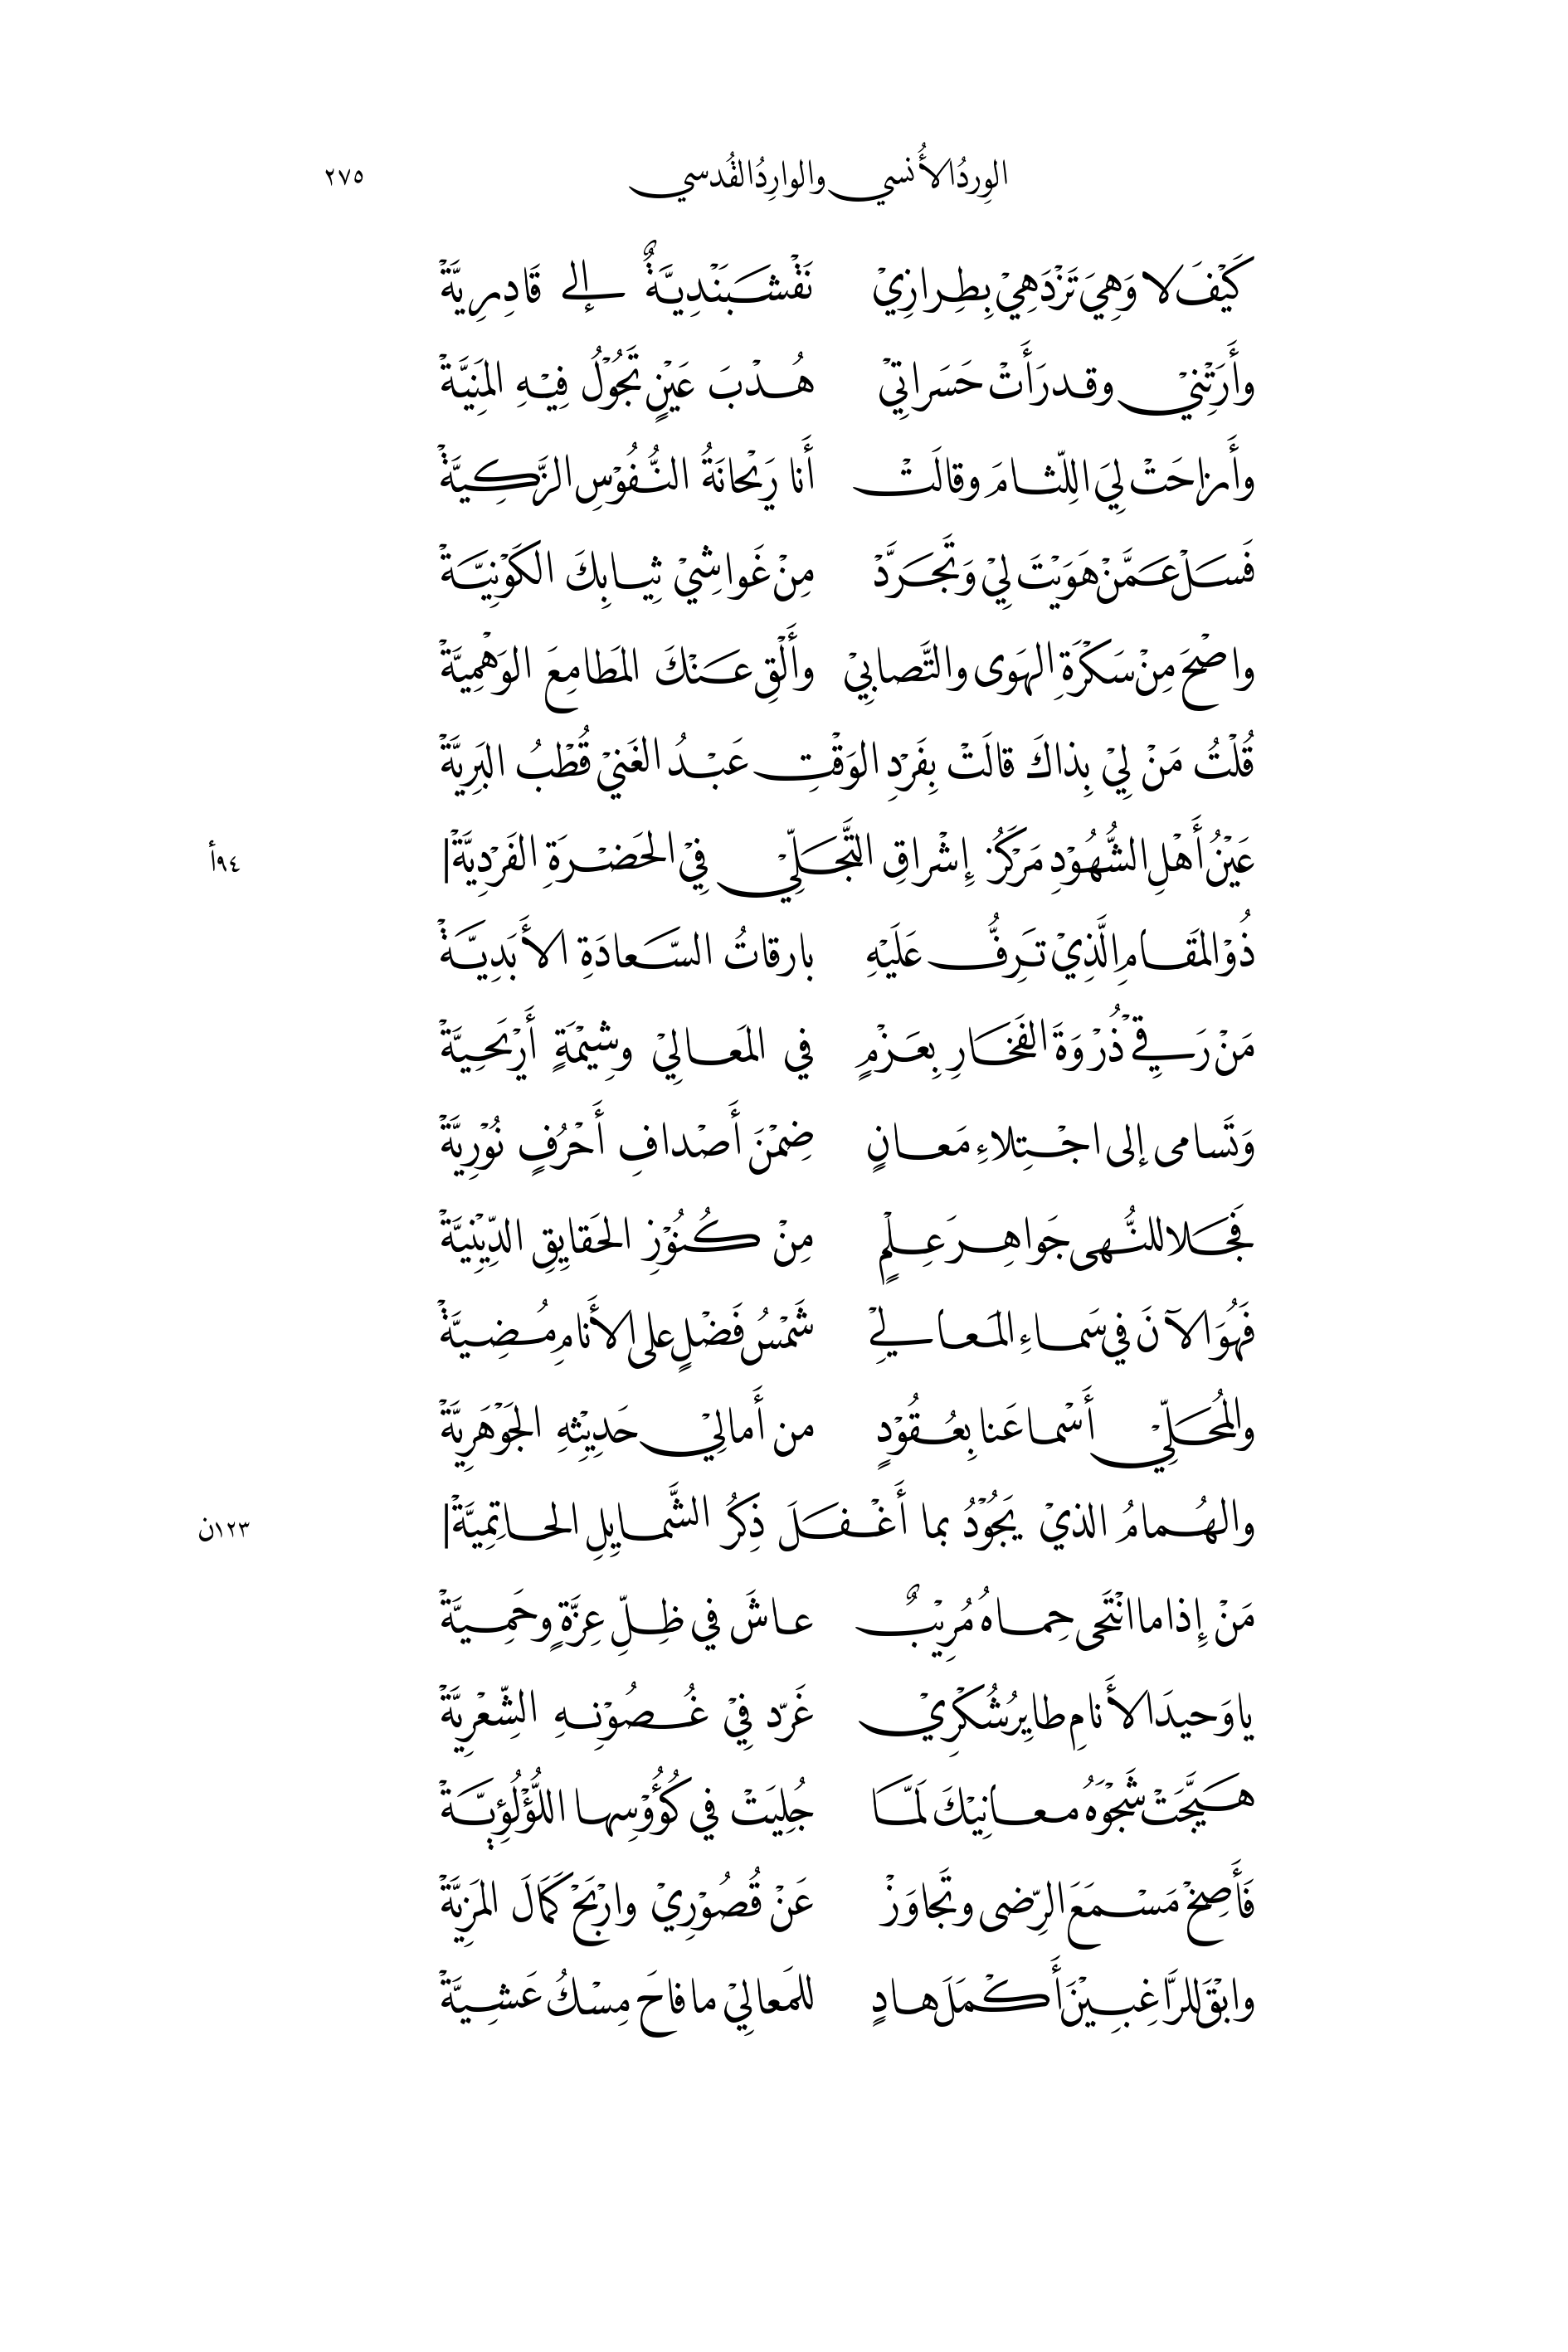 الوِردُ الأُنسي والوارِدُ القُدسي ٢٧٥
كَيْفَ لا وَهِيَ تَزْدَهِيْ بِطِرازِيْ نَقْشَبَنْدِيَّةٌ إلى قَادِرِيَّةْ
وأَرَتْنِيْ وقد رَأَتْ حَسَراتِيْ هُدْبَ عَيْنٍ تَجُوْلُ فِيْهِ المَنِيَّةْ
وأَزاحَتْ لِيَ اللِّثامَ وقالَتْ أَنا رَيْحانَةُ النُّفُوْسِ الزَّكِيَّةْ
فَسَلْ عَمَّنْ هَوَيْتَ لِيْ وَتَجَرَّدْ مِنْ غَواشِيْ ثِيابِكَ الكَوْنِيَّةْ
واصْحَ مِنْ سَكْرَةِ الهَوَى والتَّصابِيْ وأَلْقِ عَنْكَ المَطامِعَ الوَهْمِيَّةْ
قُلْتُ مَنْ لِيْ بِذاكَ قالَتْ بِفَرْدِ الوَقْتِ عَبْدُ الغَنِيْ قُطْبُ البَرِيَّةْ
عَيْنُ أَهْلِ الشُّهُوْدِ مَرْكَزُ إِشْراقِ التَّجَلِّيْ فِيْ الحَضْرَةِ الفَرْدِيَّةْ| ٩٤أ
ذُوْ المَقَامِ الَّذِيْ تَرِفُّ عَلَيْهِ بارقاتُ السَّعادَةِ الأَبَدِيَّةْ
مَنْ رَقِيْ ذُرْوَةَ الفَخَارِ بِعَزْمٍ في المَعالِيْ وشِيْمَةٍ أَرْيَحِيَّةْ
وَتَسامى إلى اجْتِلاءِ مَعانٍ ضِمْنَ أَصْدافِ أَحْرُفٍ نُوْرِيَّةْ
فَجَلا للنُّهى جَواهِرَ عِلْمٍ مِنْ كُنُوْزِ الحَقايِقِ الدِّيْنِيَّةْ
فَهُوَ الآنَ في سَماءِ المَعالِيْ شَمْسُ فَضْلٍ على الأَنامِ مُضِيَّةْ
والمُحَلِّيْ أَسْماعَنا بِعُقُوْدٍ من أَمالِيْ حَدِيْثِهِ الجَوْهَرِيَّةْ
والهُمامُ الذيْ يَجُوْدُ بما أَغْفَلَ ذِكْرُ الشَّمايِلِ الحاتِمِيَّةْ| ١٢٣ن
مَنْ إِذا ما انْتَحَى حِماهُ مُرِيْبٌ عاشَ في ظِلِّ عِزَّةٍ وحَمِيَّةْ
يا وَحيدَ الأَنامِ طايِرُ شُكْرِيْ غَرّد فِيْ غُصُوْنِهِ الشِّعْرِيَّةْ
هَيَّجَتْ شَجْوَهُ معانِيْكَ لَمَّا جُلِيَتْ في كُؤُوْسِها اللُّؤْلُؤِيَّةْ
فَأَصِخْ مَسْمَعَ الرِّضى وتَجاوَزْ عَنْ قُصُوْرِيْ وارْبَحْ كَمَالَ المَزِيَّةْ
وابْقَ للرَّاغِبِيْنَ أَكْمَلَ هادٍ للمَعالِيْ ما فاحَ مِسْكُ عَشِيَّةْ